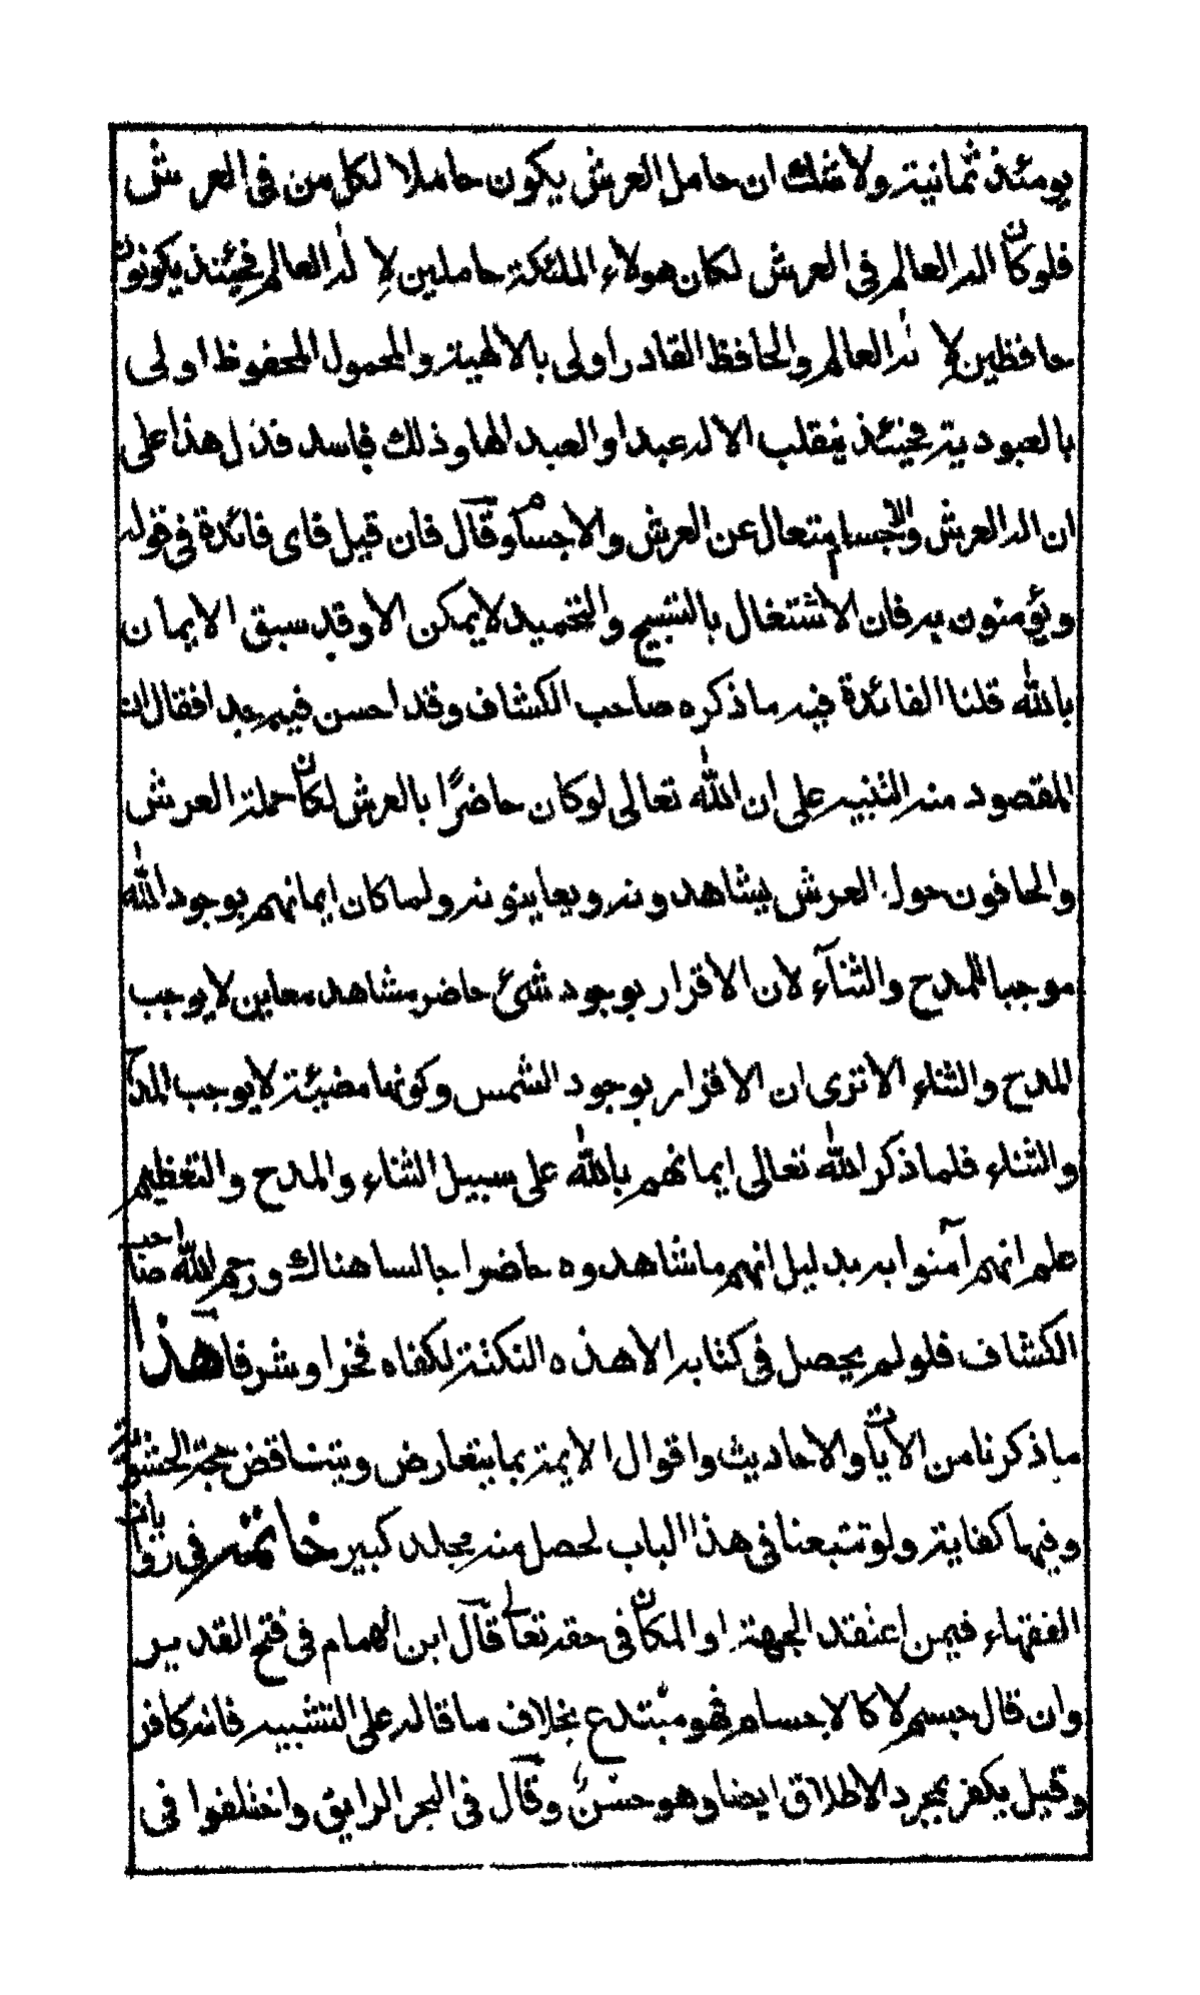 يومئذ ثمانية ولا شك ان حامل العرش يكون حاملا لكل من في العرش
فلو كان اله العالم في العرش لكان هولاء الملئكة حاملين لاله العالم فحينئذ يكونون
حافظين لاله العالم والحافظ القادر اولى بالالهية والمحمول المحفوظ اولى
بالعبودية فحينئذ ينقلب الاله عبدا والعبد الها وذلك فاسد فدل هذا على
ان اله العرش والاجسام متعال عن العرش والاجسام وقال فان قيل فاى فائدة في قوله
ويؤمنون به فان الاشتغال بالتسبيح والتحميد لا يمكن الا وقد سبق الايمان
بالله قلنا الفائدة فيه ما ذكره صاحب الكشاف وقد احسن فيه جدا فقال ان
المقصود منه التنبيه على ان الله تعالى لو كان حاضرًا بالعرش لكان حملة العرش
والحافون حول العرش يشاهدونه ويعاينونه ولما كان ايمانهم بوجود الله
موجبا للمدح والثنآء لان الاقرار بوجود شئ حاضر مشاهد معاين لا يوجب
المدح والثناء الا ترى ان الاقرار بوجود الشمس وكونها مضيئة لا يوجب المدح
والثناء فلما ذكر الله تعالى ايمانهم بالله على سبيل الثناء والمدح والتعظيم
علم انهم آمنوا به بدليل انهم ما شاهدوه حاضرا جالسا هناك ورحم الله صاحب
الكشاف فلو لم يحصل في كتابه الا هذه النكتة لكفاه فخرا وشرفا هذا
ما ذكرنا من الآيات والاحاديث واقوال الايمة بما يتعارض ويتناقض حجة الحشوية
وفيها كفاية ولو تتبعنا في هذا الباب لحصل منه مجلد كبير خاتمة في روايات
الفقهاء فيمن اعتقد الجهة او المكان في حقه تعالى قال ابن الهمام في فتح القدير
وان قال جسم لا كالاجسام فهو مبتدع بخلاف ما قاله على التشبيه فانه كافر
وقيل يكفر بمجرد الاطلاق ايضا وهو حسنٌ وقال في البحر الرايق واختلفوا في